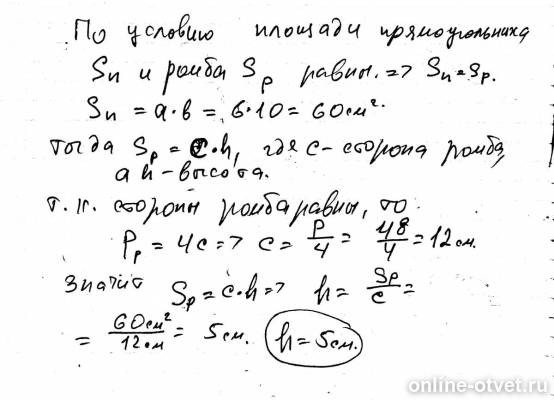 По условию площади прямоугольника
Sп и ромба Sр равны. => Sп = Sр.
Sп = a · b = 6 · 10 = 60 см².
Тогда Sр = c · h, где c - сторона ромба,
а h - высота.
Т.к. стороны ромба равны, то
Pр = 4c => c = P/4 = 48/4 = 12 см.
Значит Sр = c · h => h = Sр/c =
= 60 см²/12 см = 5 см. h = 5 см.
online-otvet.ru